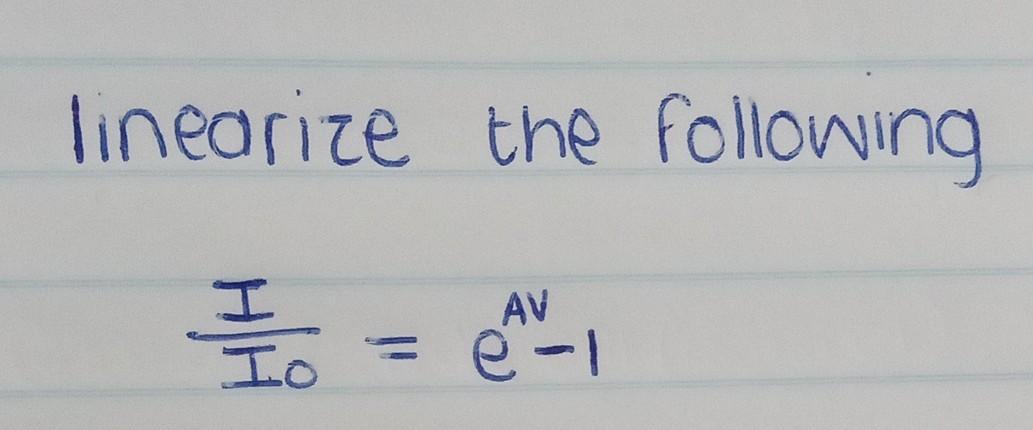 linearize the following
I/I0 = e^AV - 1